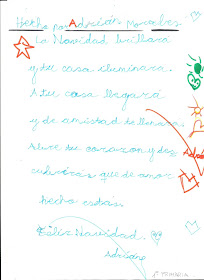 Hecho por Adrián Morales.
La Navidad brillará
y tu casa iluminará.
A tu casa llegará
y de amistad te llenará.
Abre tu corazón y des
cubrirás que de amor
hecho estás.
Feliz Navidad.
Adrián
1º PRIMARIA